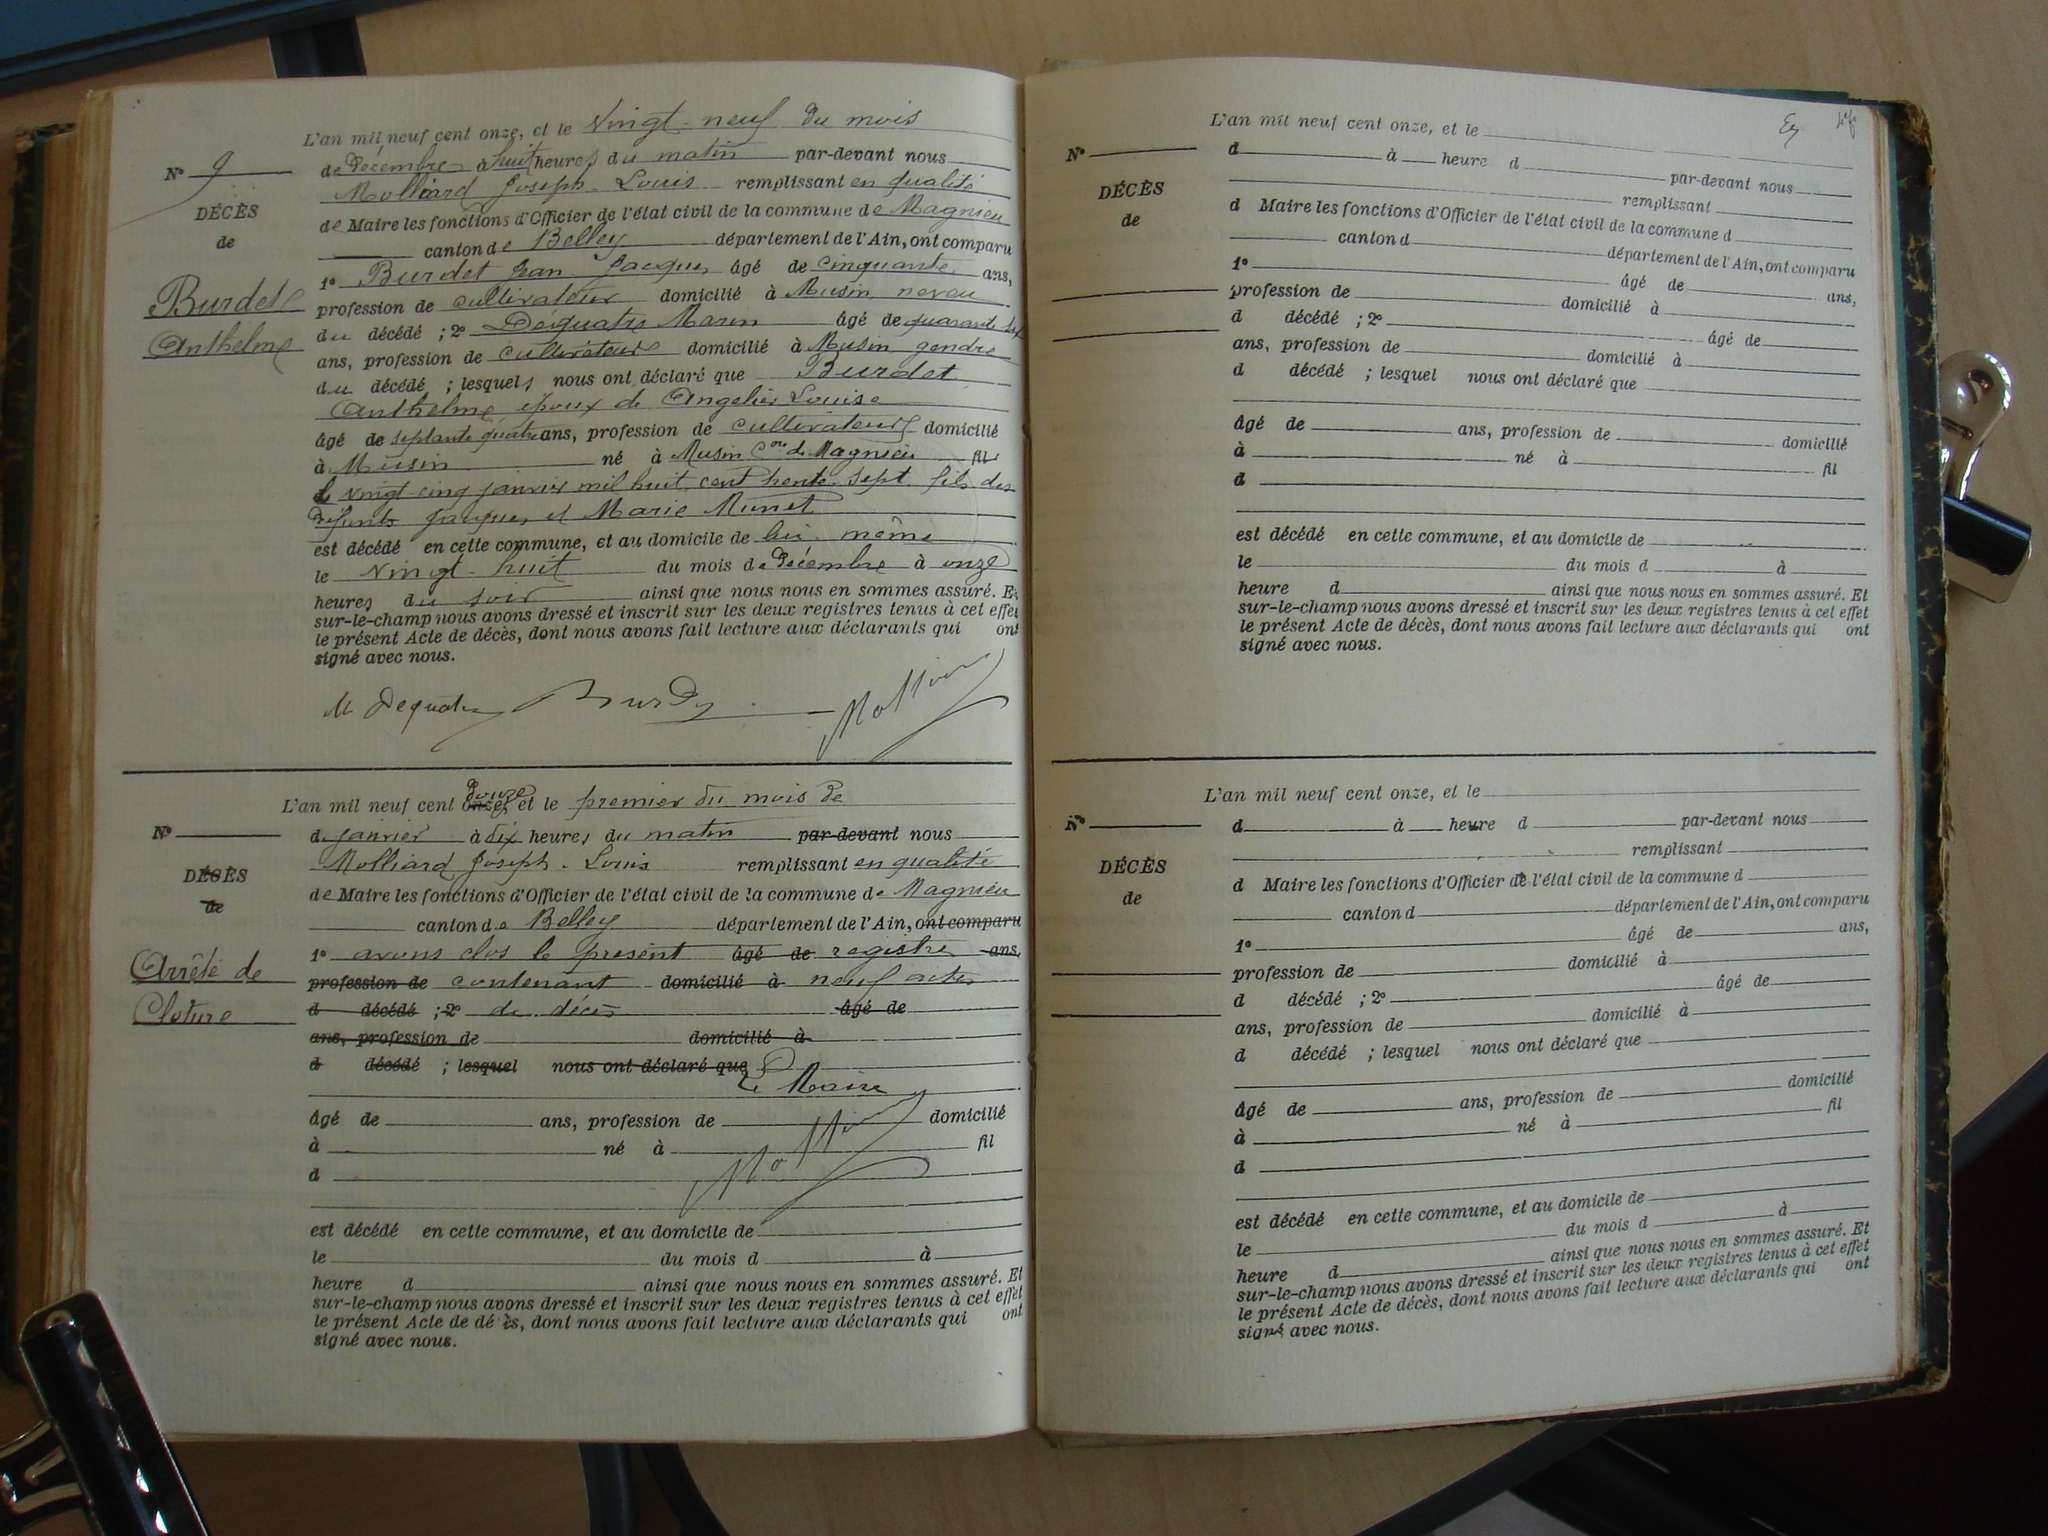 L'an mil neuf cent onze, et le vingt-neuf du mois
N° 9
de décembre à huit heures du matin par-devant nous
Molliard Joseph-Louis remplissant en qualité
DÉCÈS
de Maire les fonctions d'Officier de l'état civil de la commune de Magnieu
de
canton de Belley département de l'Ain, ont comparu
1° Burdet Jean Jacques âgé de cinquante ans,
Burdet
profession de cultivateur domicilié à Musin neveu
du décédé ; 2° Dequatre Marin âgé de quarante
Anthelme
ans, profession de cultivateur domicilié à Musin gendre
du décédé ; lesquels nous ont déclaré que Burdet
Anthelme époux de Angelier Louise
âgé de septante quatre ans, profession de cultivateur domicilié
à Musin né à Musin Cne de Magnieu fil
le vingt-cinq janvier mil huit cent trente-sept fils des
défunts Jacques et Marie Munet
est décédé en cette commune, et au domicile de lui-même
le vingt-huit du mois de décembre à onze
heures du soir ainsi que nous nous en sommes assuré. Et
sur-le-champ nous avons dressé et inscrit sur les deux registres tenus à cet effet
le présent Acte de décès, dont nous avons fait lecture aux déclarants qui ont
signé avec nous.
M Dequatre Burdet
L'an mil neuf cent onze, douze et le premier du mois de
N°
d janvier à dix heures du matin par-devant nous
Molliard Joseph-Louis remplissant en qualité
DÉCÈS
de Maire les fonctions d'Officier de l'état civil de la commune de Magnieu
de
canton de Belley département de l'Ain, ont comparu
1° avons clos le présent âgé de registre ans,
Arrêté de
profession de contenant domicilié à neuf actes
Cloture
d décédé ; 2° de décès âgé de
ans, profession de domicilié à
d décédé ; lesquel nous ont déclaré que
Le Maire
âgé de ans, profession de domicilié
à né à fil
d
est décédé en cette commune, et au domicile de
le du mois d à
heure d ainsi que nous nous en sommes assuré. Et
sur-le-champ nous avons dressé et inscrit sur les deux registres tenus à cet effet
le présent Acte de dé ès, dont nous avons fait lecture aux déclarants qui ont
signé avec nous.
L'an mil neuf cent onze, et le
N°
d à heure d par-devant nous
remplissant
DÉCÈS
d Maire les fonctions d'Officier de l'état civil de la commune d
de
canton d département de l'Ain, ont comparu
1° âgé de ans,
profession de domicilié à
d décédé ; 2° âgé de
ans, profession de domicilié à
d décédé ; lesquel nous ont déclaré que
âgé de ans, profession de domicilié
à né à fil
d
est décédé en cette commune, et au domicile de
le du mois d à
heure d ainsi que nous nous en sommes assuré. Et
sur-le-champ nous avons dressé et inscrit sur les deux registres tenus à cet effet
le présent Acte de décès, dont nous avons fait lecture aux déclarants qui ont
signé avec nous.
L'an mil neuf cent onze, et le
N°
d à heure d par-devant nous
remplissant
DÉCÈS
d Maire les fonctions d'Officier de l'état civil de la commune d
de
canton d département de l'Ain, ont comparu
1° âgé de ans,
profession de domicilié à
d décédé ; 2° âgé de
ans, profession de domicilié à
d décédé ; lesquel nous ont déclaré que
âgé de ans, profession de domicilié
à né à fil
d
est décédé en cette commune, et au domicile de
le du mois d à
heure d ainsi que nous nous en sommes assuré. Et
sur-le-champ nous avons dressé et inscrit sur les deux registres tenus à cet effet
le présent Acte de décès, dont nous avons fait lecture aux déclarants qui ont
signé avec nous.